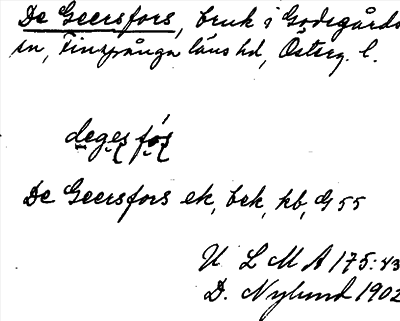 De Geersfors, bruk i Godegårds
sn, Finspånga läns hd, Österg. l.
deges fo̗s
De Geersfors ek, bek, kb, G 55
U L M A 175:43
D. Nylund 1902